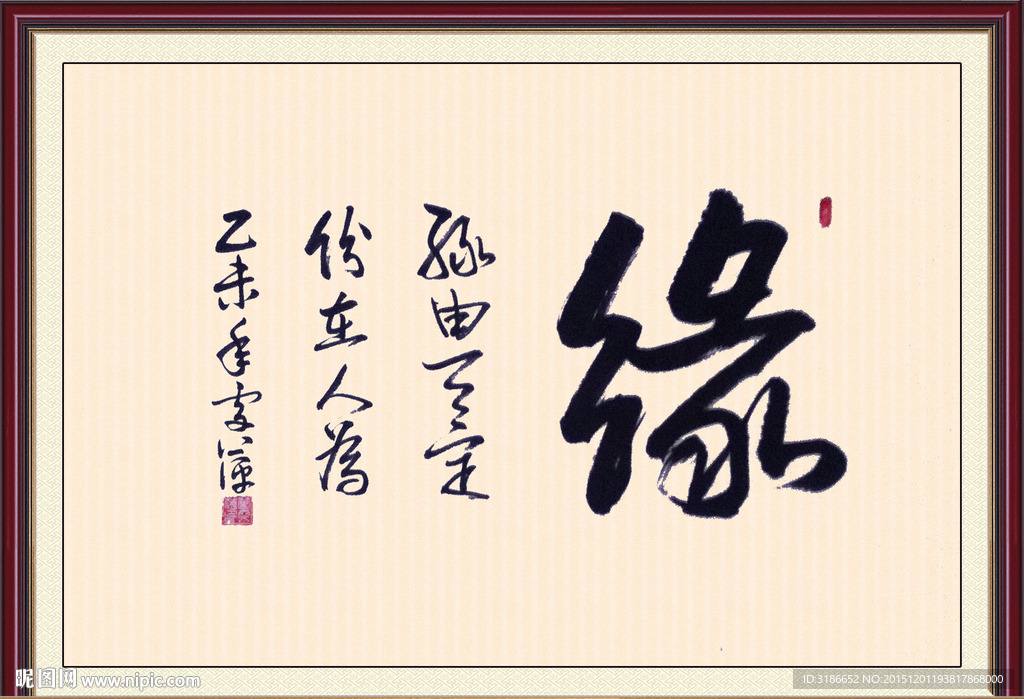 缘
缘由天定
份在人为
乙未年
昵图网 www.nipic.com
ID:3186652 NO:20151201193817868000